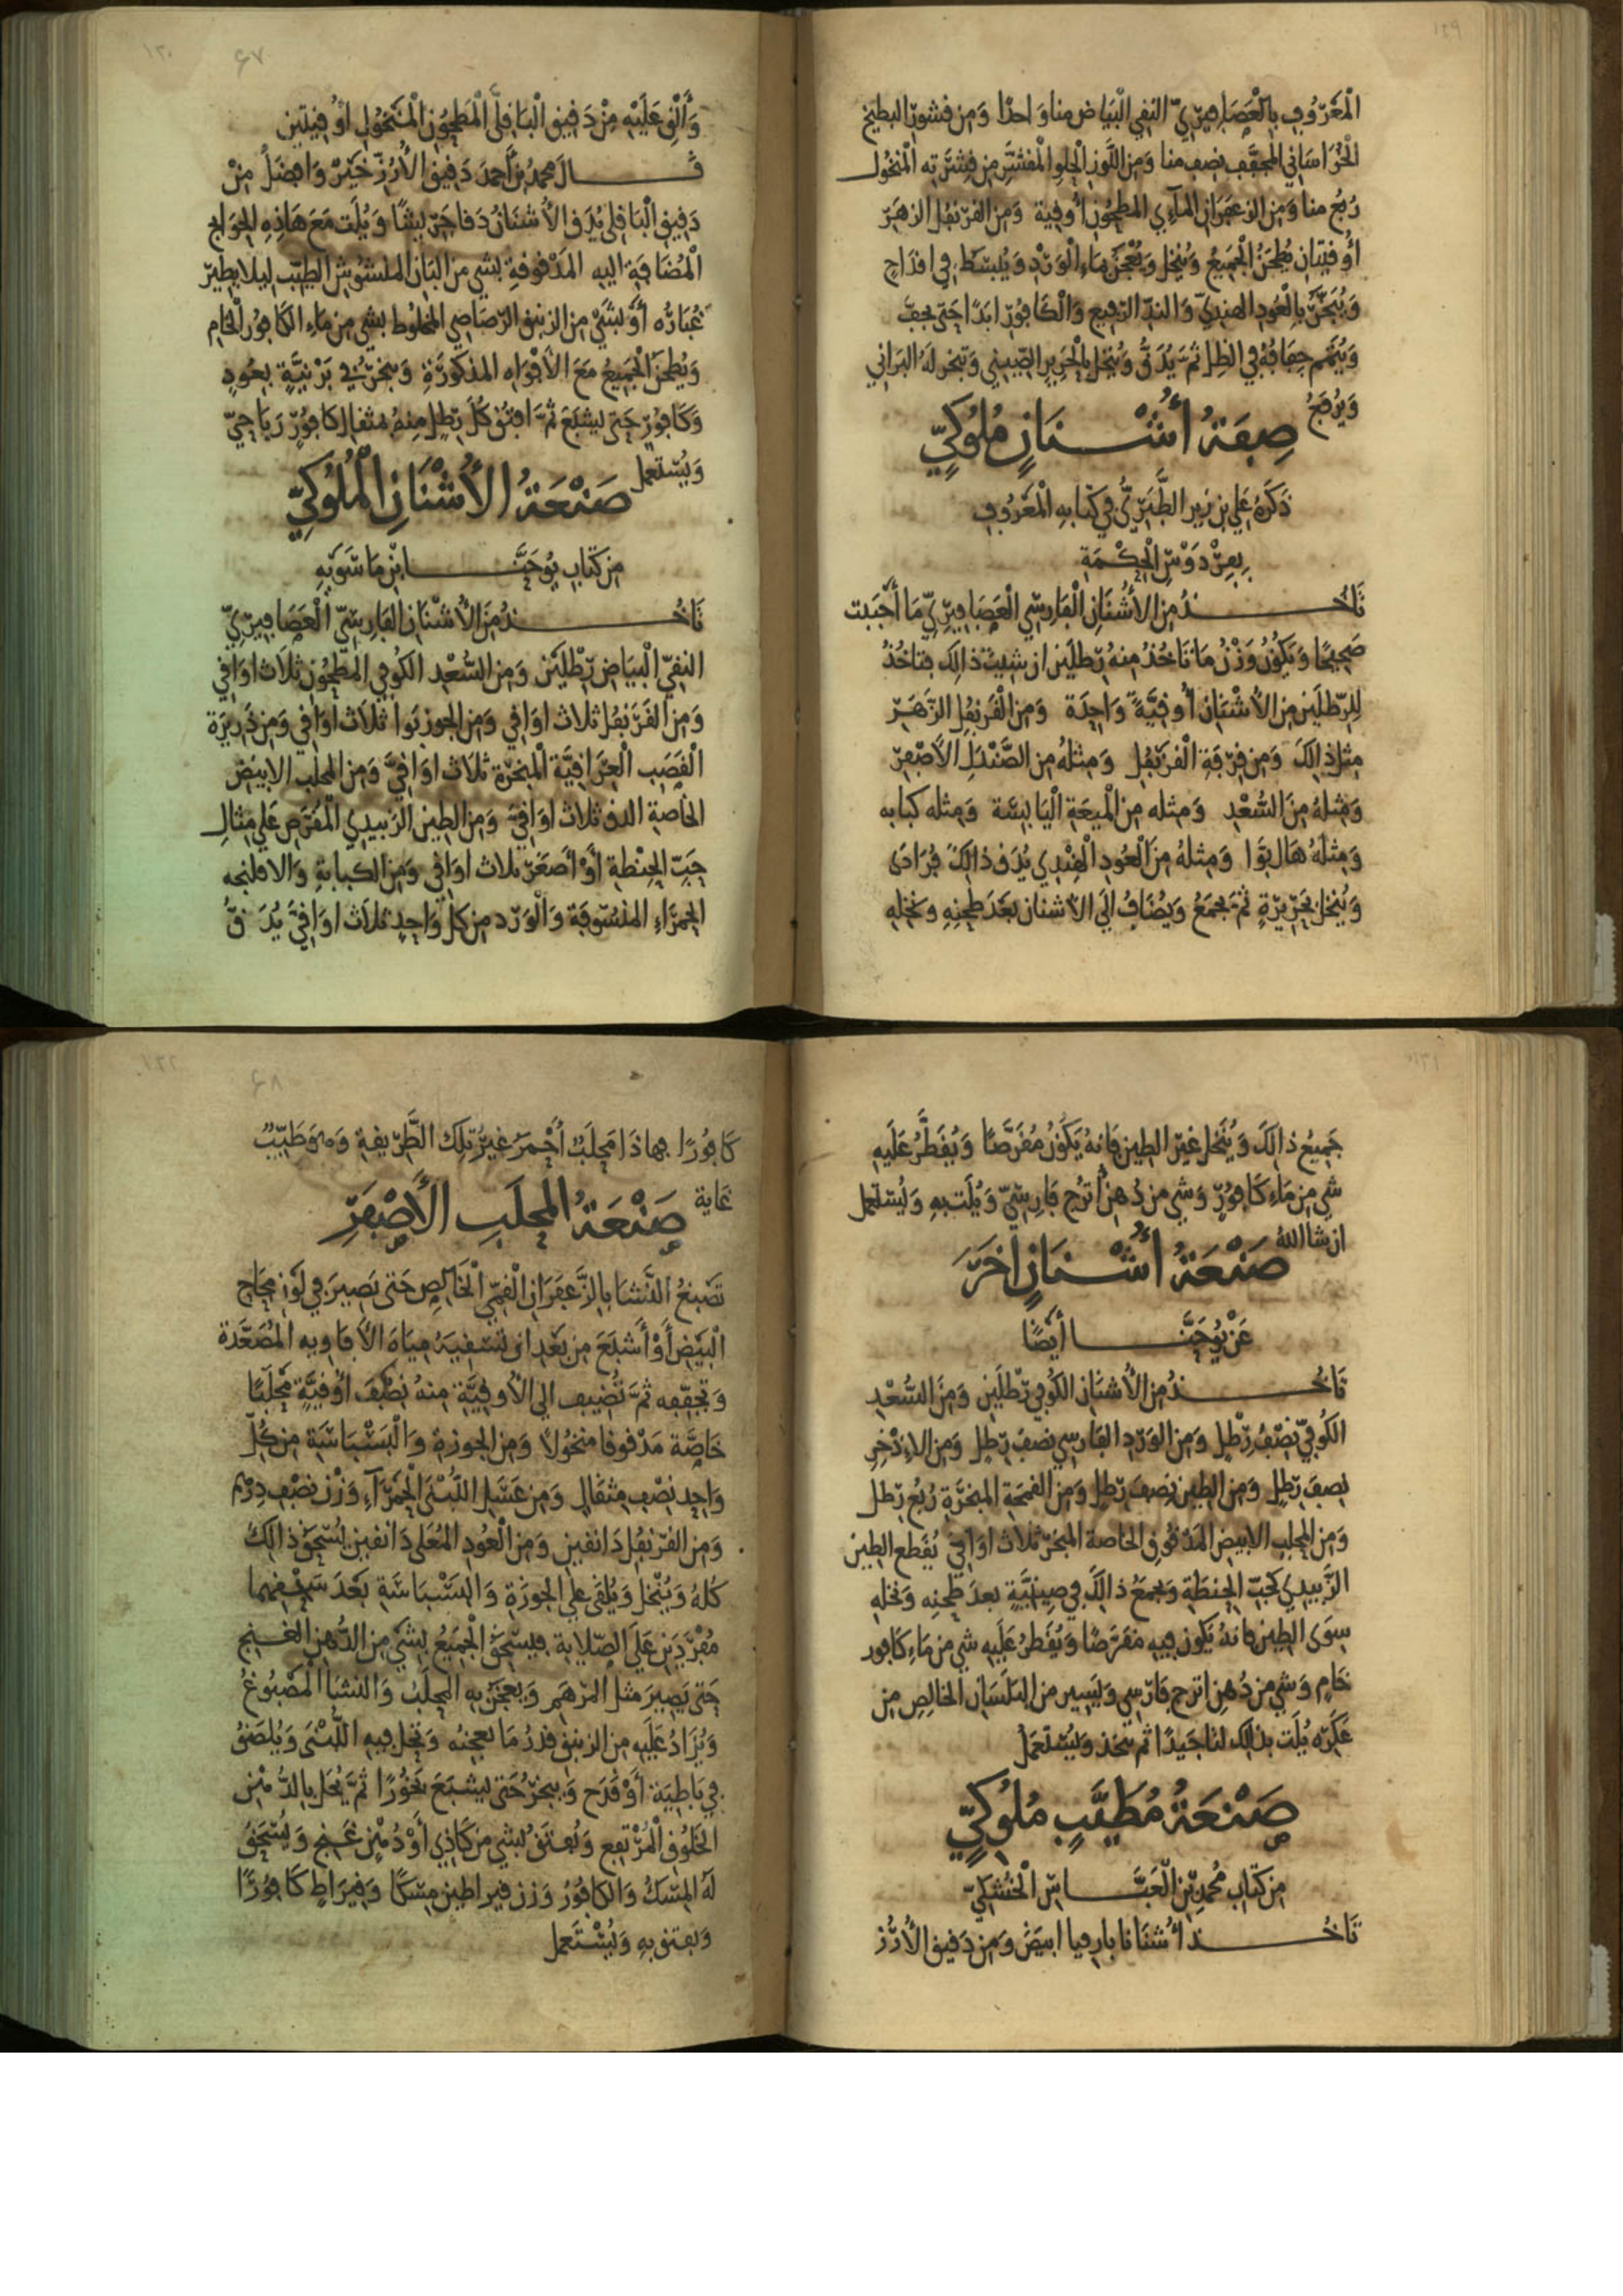 المعروف بالعصافيري النقي البياض منا واحدا ومن قشور البطيخ
الخراساني المجفف نصف منا ومن اللوز الحلو المقشر من قشرته المنخول
ربع منا ومن الزعفران المآءي المطحون أوقية ومن القرنفل الزهر
أوقيتان يطحن الجميع وينخل ويعجن بماء الورد ويبسط في اقداح
ويبخر بالعود الهندي والند الرفيع والكافور ابدا حتى يجف
ويتمم جفافه في الظل ثم يدق وينخل بالحرير الصيني وتبخر له البراني
ويرفع
صفة أشنان ملوكي
ذكره علي بن زير الطبري في كتابه المعروف
بفردوس الحكمة
تأخذ من الأشنان الفارسي العصافيري ما أحببت
صحيحا ويكون وزن ما تأخذ منه رطلين ان شيت ذالك فتاخذ
للرطلين من الأشنان أوقية واحدة ومن القرنفل الزهر
مثل ذالك ومن قرفة القرنفل ومثله من الصندل الأصفر
ومثله من السعد ومثله من الميعة اليابسة ومثله كبابه
ومثله هال بوا ومثله من العود الهندي يدق ذالك فرادى
وينخل بحريرة ثم يجمع ويضاف الي الأشنان بعد طحنه ونخله
وألق عليه من دقيق الباقلى المطحون المنخول أوقيتين
قال محمد بن أحمد دقيق الأرز خير وافضل من
دقيق الباقلى يدق الأشنان دقا جريشا ويلت مع هاذه الحوايج
المضافة اليه المدقوقة بشي من البان المنشوش الطيب ليلا يطير
غباره أو بشي من الزنبق الرصاصي المخلوط بشي من ماء الكافور الخام
ويطحن الجميع مع الأفواه المذكورة ويبخر في برنية بعود
وكافور حتى يشبع ثم افتق كل رطل منه بمثقال كافور رياحي
ويستعمل
صنعة الأشنان الملوكي
من كتاب يوحنا ابن ماسويه
تأخذ من الأشنان الفارسي العصافيري
النقي البياض رطلين ومن السعد الكوفي المطحون ثلاث اواقي
ومن القرنفل ثلاث اواقي ومن الجوز بوا ثلاث اواقي ومن ذريرة
القصب العراقية المبخرة ثلاث اواقي ومن المحلب الابيض
الخاصة الدق ثلاث اواقي ومن الطين الزبيدي المقرص على مثال
حب الحنطة أو أصغر ثلاث اواقي ومن الكبابة والافلنجه
الحمراء المنسوفة والورد من كل واحد ثلاث اواقي يدق
جميع ذالك وينخل غير الطين فانه يكون مقرصا ويقطر عليه
شي من ماء كافور وشي من دهن أترج فارسي ويلت به ويستعمل
ان شا الله
صنعة أشنان اخر
عن يوحنا أيضا
تأخذ من الأشنان الكوفي رطلين ومن السعد
الكوفي نصف رطل ومن الورد الفارسي نصف رطل ومن الإذخر
نصف رطل ومن الطين نصف رطل ومن القمحة المبخرة ربع رطل
ومن المحلب الابيض المدقوق الخاصة المبخر ثلاث اواقي يقطع الطين
الزبيدي كحب الحنطة ويجمع ذالك في صينية بعد طحنه ونخله
سوى الطين فانه يكون فيه مقرصا ويقطر عليه شي من ماء كافور
خام وشي من دهن اترج فارسي ويسير من البلسان الخالص من
عكره يلت بذالك لتا جيدا ثم يتخذ ويستعمل
صنعة مطيب ملوكي
من كتاب محمد بن العباس الخشكي
تأخذ أشنانا بارقيا ابيض ومن دقيق الأرز
كافورا فهاذا محلب أحمر غير تلك الطريقة وهو طيب
غاية
صنعة المحلب الأصفر
تصبغ النشا بالزعفران القمي الخالص حتى يصير في لون محاح
البيض أو أشبع من بعد ان تسقيه مياه الأفاويه المصعدة
وتجففه ثم تضيف الي الأوقية منه نصف أوقية محلبا
خاصة مدقوقا منخولا ومن الجوزة والبسباسة من كل
واحد نصف مثقال ومن عسل اللبنى الحمرآء وزن نصف درهم
ومن القرنفل دانقين ومن العود المعلى دانقين يسحق ذالك
كله وينخل ويلقى على الجوزة والبسباسة بعد سحقهما
مفردين على الصلاية فيسحق الجميع بشي من الدهن الغنج
حتى يصير مثل المرهم ويعجن به المحلب والنشا المصبوغ
ويزاد عليه من الزنبق قدر ما يعجنه وتحل فيه اللبنى ويلصق
في باطية أو قدح ويبخر حتى يشبع بخورا ثم يحل بالدهن
الخلوق المرتفع ويفتق بشي من كاذي أو دهن غنج ويسحق
له المسك والكافور وزن قيراطين مسكا وقيراط كافورا
ويفتق به ويستعمل